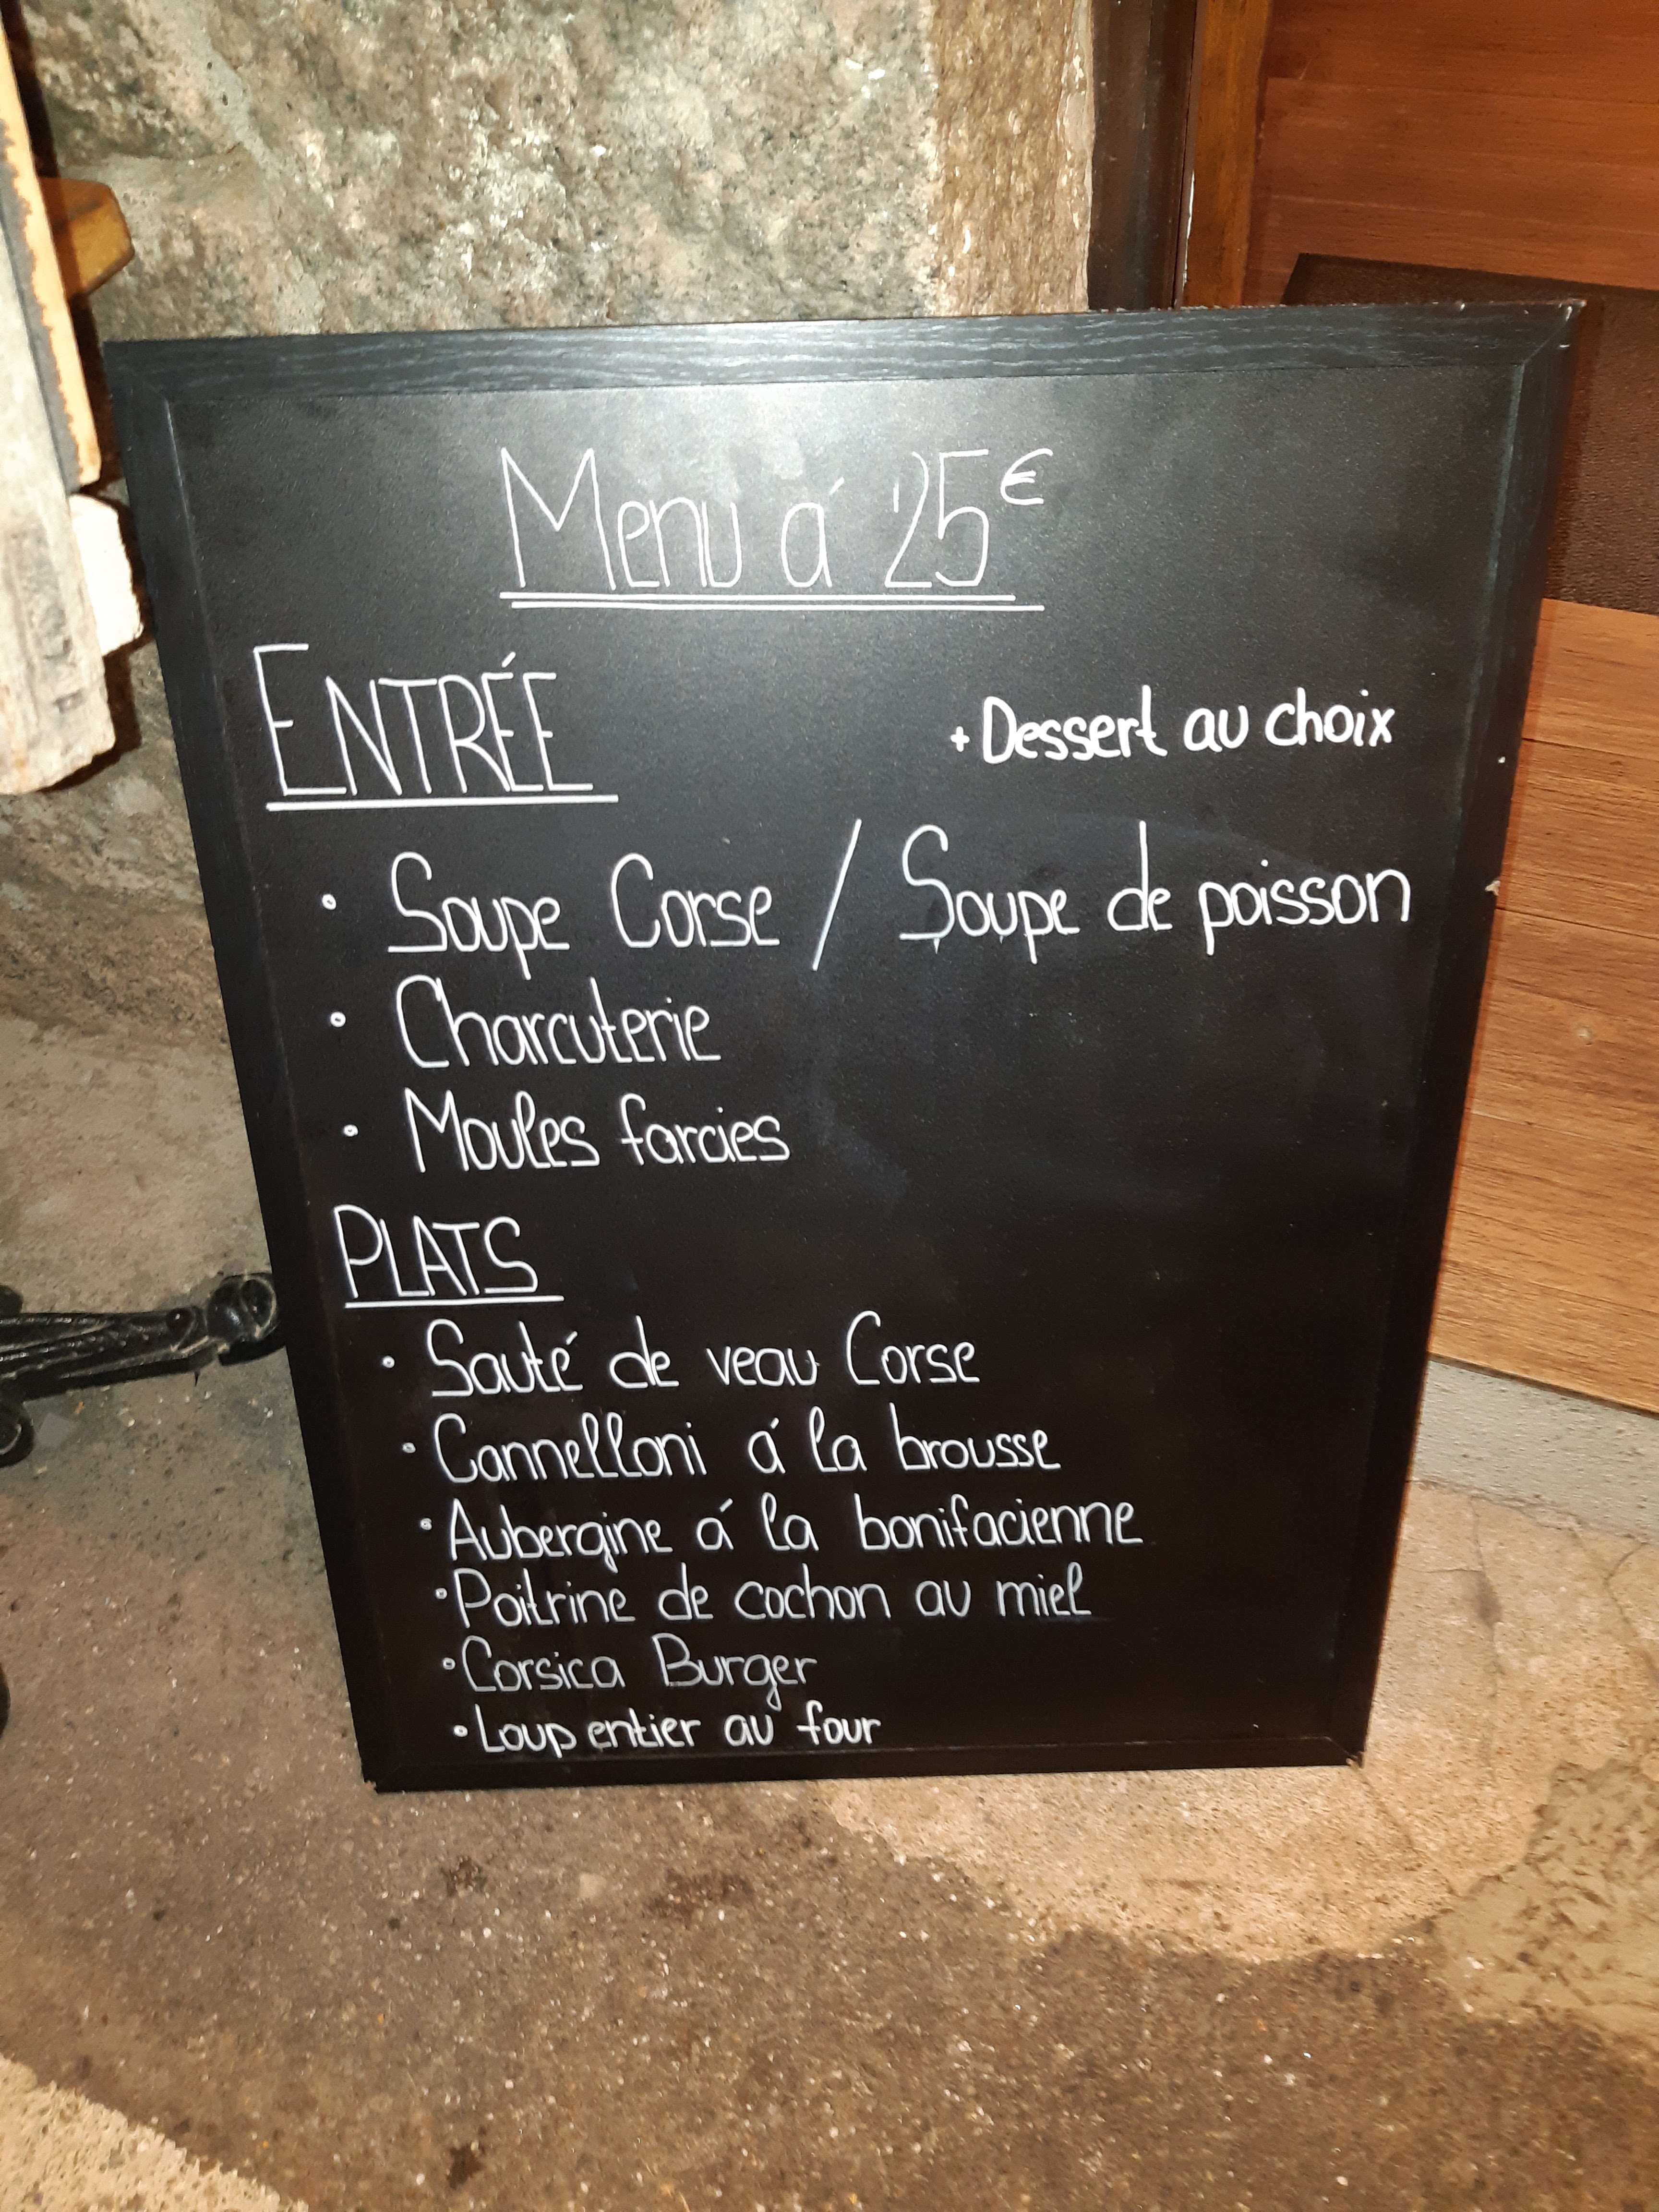 Menu á 25€
ENTRÉE
+ Dessert au choix
• Soupe Corse / Soupe de poisson
• Charcuterie
• Moules farcies
PLATS
• Sauté de veau Corse
• Cannelloni á la brousse
• Aubergine á la bonifacienne
• Poitrine de cochon au miel
• Corsica Burger
• Loup entier au four